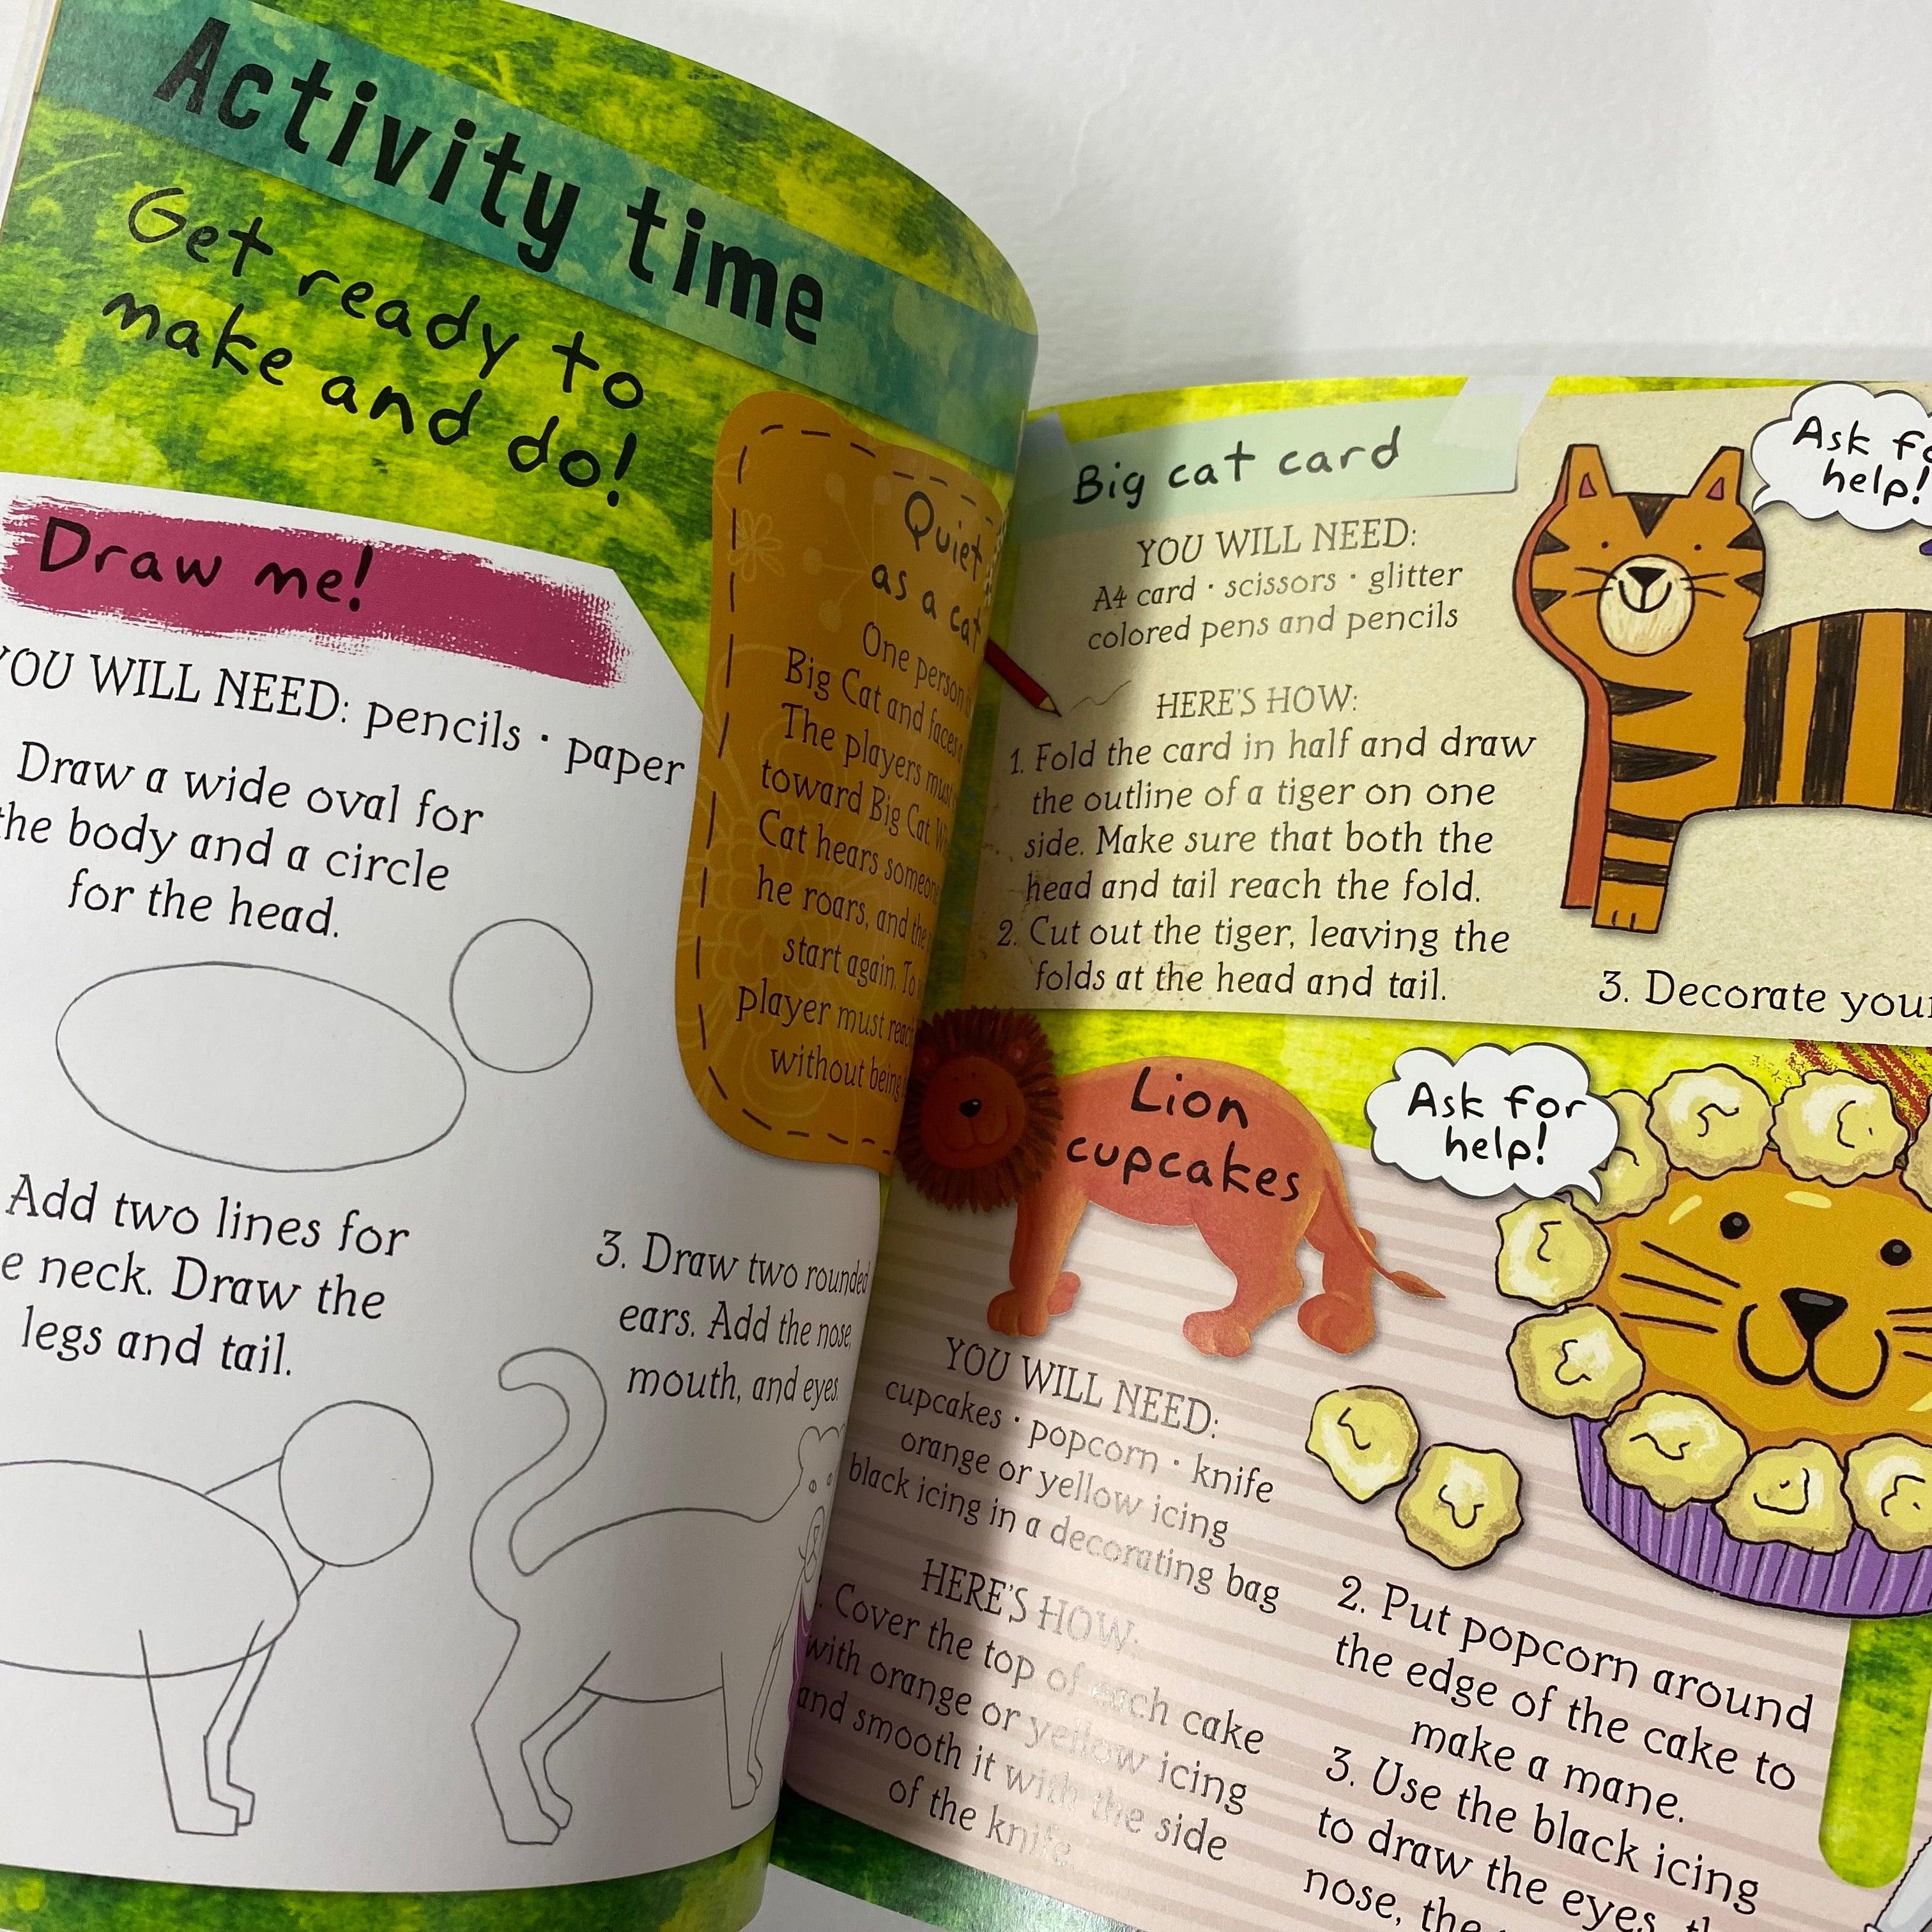 Activity time
Get ready to
make and do!
Draw me!
YOU WILL NEED: pencils · paper
Draw a wide oval for
the body and a circle
for the head.
Add two lines for
neck. Draw the
legs and tail.
3. Draw two rounded
ears. Add the nose,
mouth, and eyes.
Quiet
as a cat
One person
Big Cat and faces
The players must
toward Big Cat.
Cat hears someone
he roars, and the
start again. To
player must reach
without being
Big cat card
YOU WILL NEED:
A4 card · scissors · glitter
colored pens and pencils
HERE'S HOW:
1. Fold the card in half and draw
the outline of a tiger on one
side. Make sure that both the
head and tail reach the fold.
2. Cut out the tiger, leaving the
folds at the head and tail.
Ask for
help!
3. Decorate your
Lion
cupcakes
Ask for
help!
YOU WILL NEED:
cupcakes · popcorn · knife
orange or yellow icing
black icing in a decorating bag
HERE'S HOW:
Cover the top of each cake
with orange or yellow icing
and smooth it with the side
of the knife.
2. Put popcorn around
the edge of the cake to
make a mane.
3. Use the black icing
to draw the eyes,
nose, the